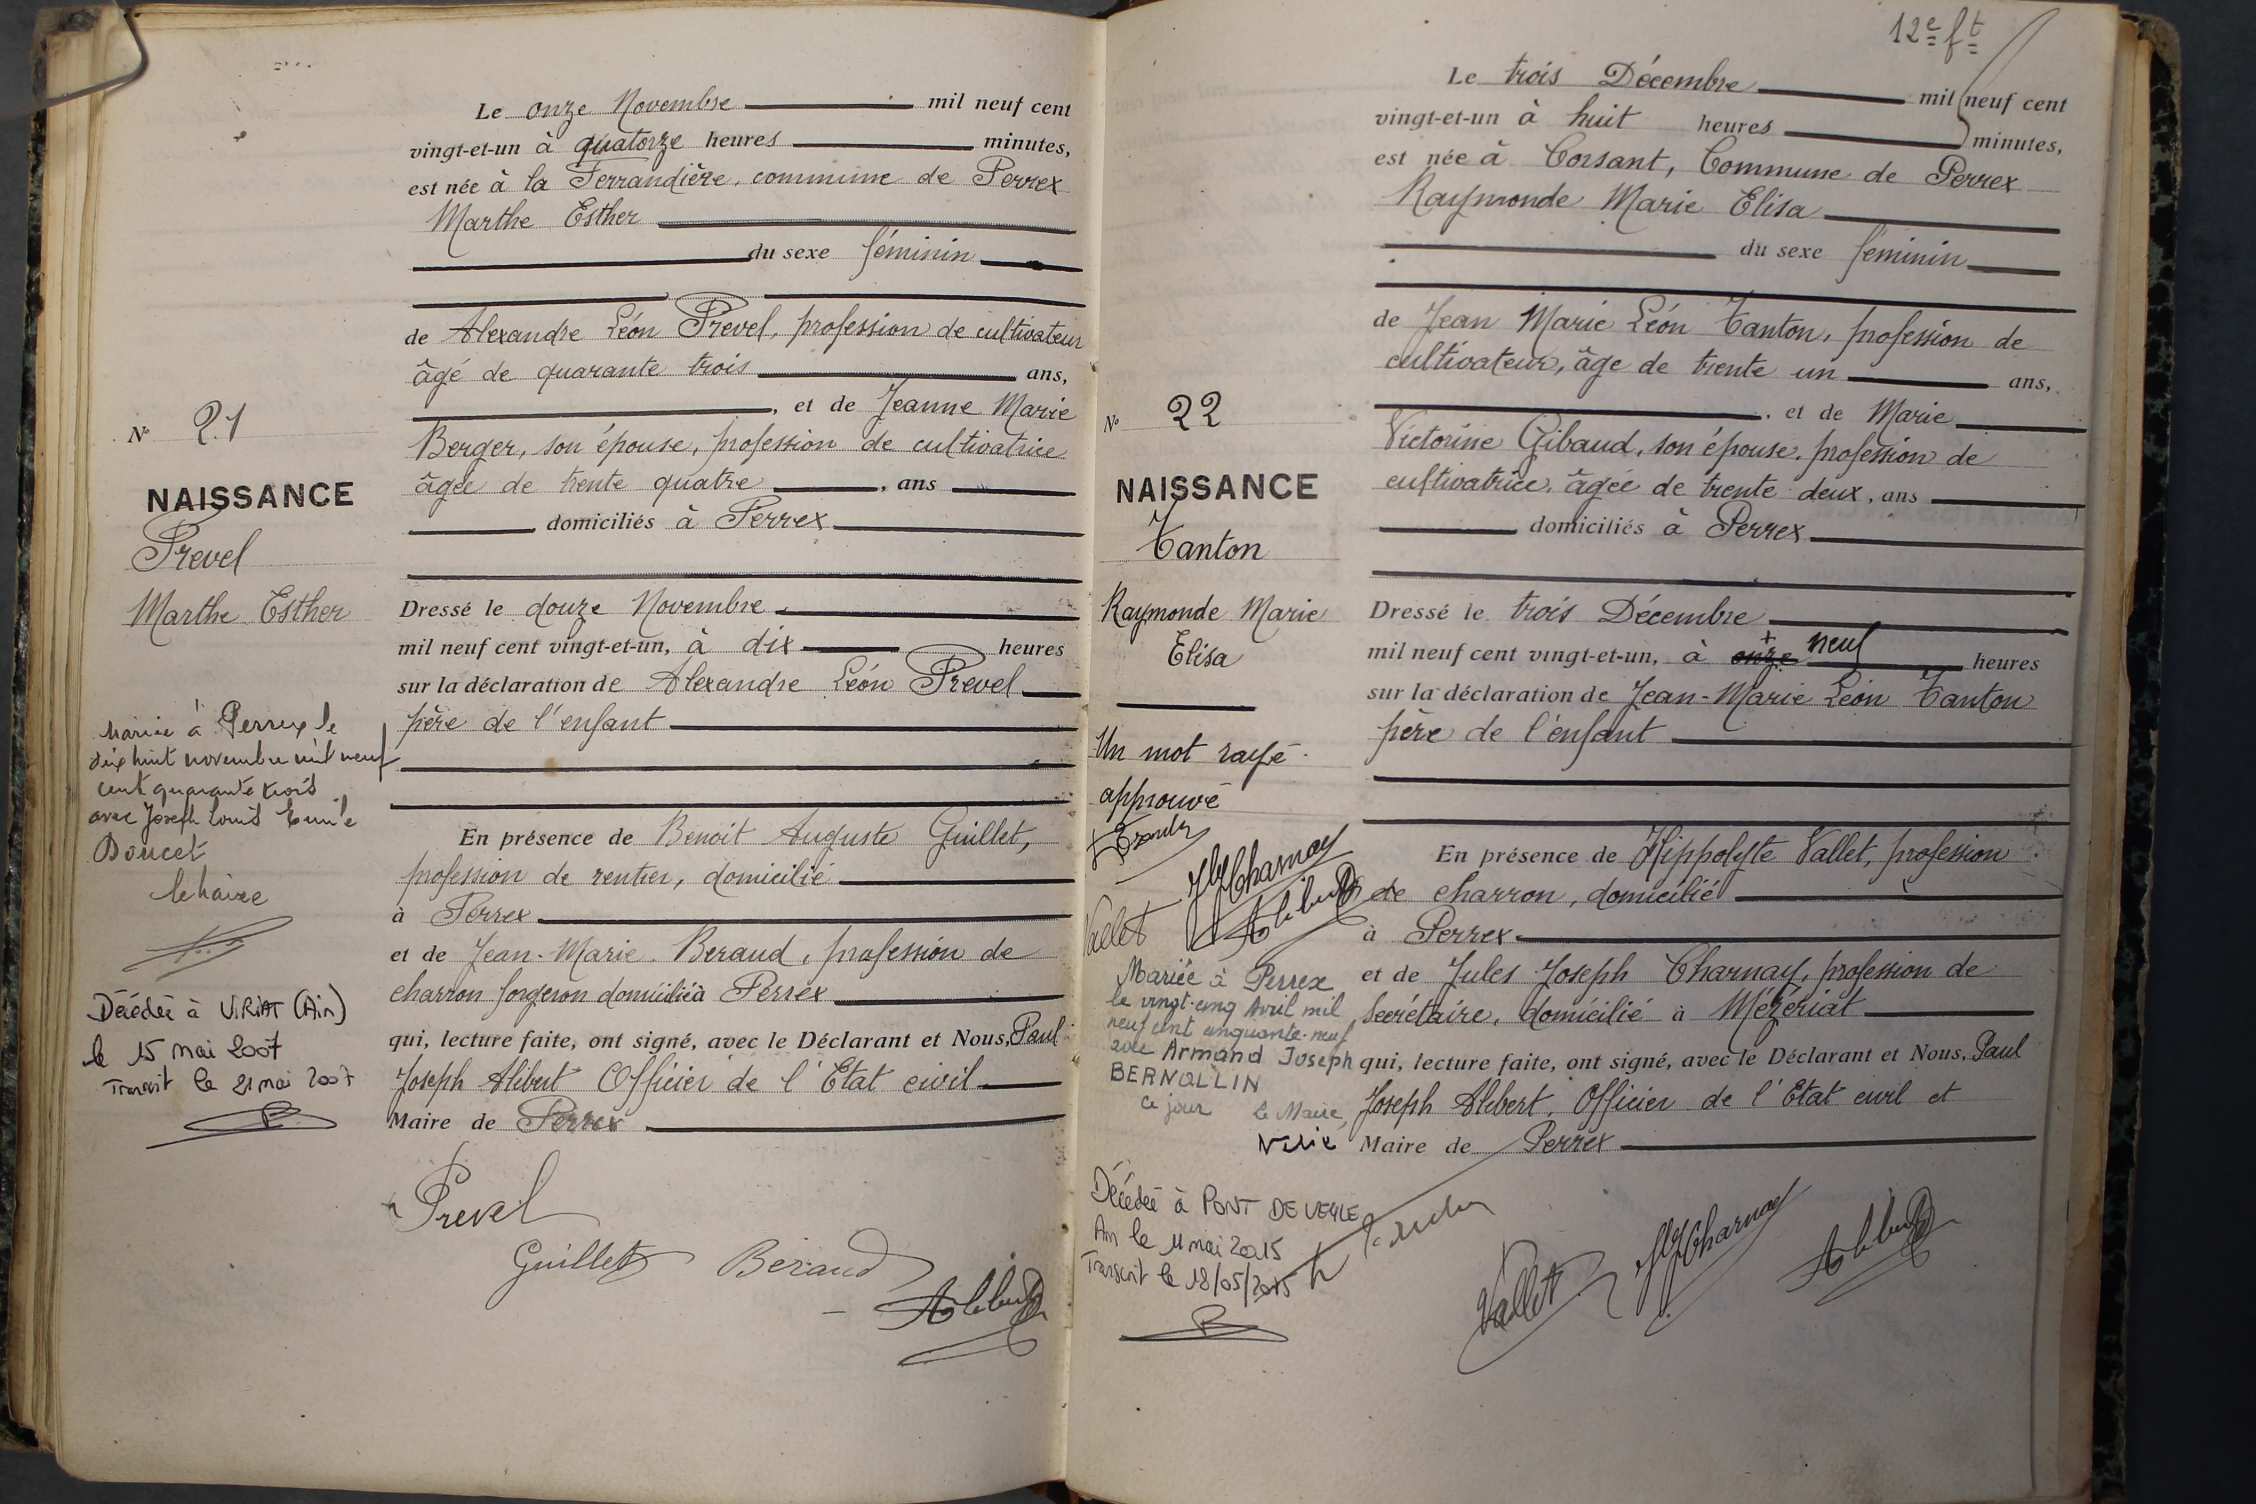 Le onze Novembre mil neuf cent
vingt-et-un à quatorze heures minutes,
est née à la Ferrandière, commune de Perrex
Marthe Esther
du sexe féminin
de Alexandre Léon Prevel, profession de cultivateur
âgé de quarante trois ans,
, et de Jeanne Marie
Berger, son épouse, profession de cultivatrice
âgée de trente quatre , ans
domiciliés à Perrex
Dressé le douze Novembre
mil neuf cent vingt-et-un, à dix heures
sur la déclaration de Alexandre Léon Prevel
père de l'enfant
En présence de Benoit Auguste Guillet,
profession de rentier, domicilié
à Perrex
et de Jean-Marie Beraud, profession de
charron forgeron domicilié à Perrex
qui, lecture faite, ont signé, avec le Déclarant et Nous, Paul
Joseph Alibert Officier de l'Etat civil
Maire de Perrex
Prevel
Guillet Beraud
Alibert
N° 21
NAISSANCE
Prevel
Marthe Esther
Mariée à Perrex le
dix huit novembre mil neuf
cent quarante trois
avec Joseph Louis Emile
Doucet
le Maire
Décédée à VIRIAT (Ain)
le 15 mai 2007
Transcrit le 21 mai 2007
12e ft
Le trois Décembre mil neuf cent
vingt-et-un à huit heures minutes,
est née à Corsant, Commune de Perrex
Raymonde Marie Elisa
du sexe féminin
de Jean Marie Léon Tanton, profession de
cultivateur, âge de trente un ans,
, et de Marie
Victorine Gibaud, son épouse, profession de
cultivatrice, âgée de trente deux, ans
domiciliés à Perrex
Dressé le trois Décembre
mil neuf cent vingt-et-un, à onze + neuf heures
sur la déclaration de Jean-Marie Léon Tanton
père de l'enfant
En présence de Hippolyte Vallet, profession
de charron, domicilié
à Perrex
et de Jules Joseph Charnay, profession de
Secrétaire, domicilié à Mézériat
qui, lecture faite, ont signé, avec le Déclarant et Nous, Paul
Joseph Alibert, Officier de l'Etat civil et
Maire de Perrex
Vallet Charnay Alibert
N° 22
NAISSANCE
Tanton
Raymonde Marie
Elisa
Un mot rayé
approuvé
Charnay
Vallet Alibert
Mariée à Perrex
le vingt-cinq Avril mil
neuf cent cinquante-neuf
avec Armand Joseph
BERNOLLIN
ce jour le Maire,
Décédée à PONT DE VEYLE
Ain le 11 mai 2015
Transcrit le 18/05/2015